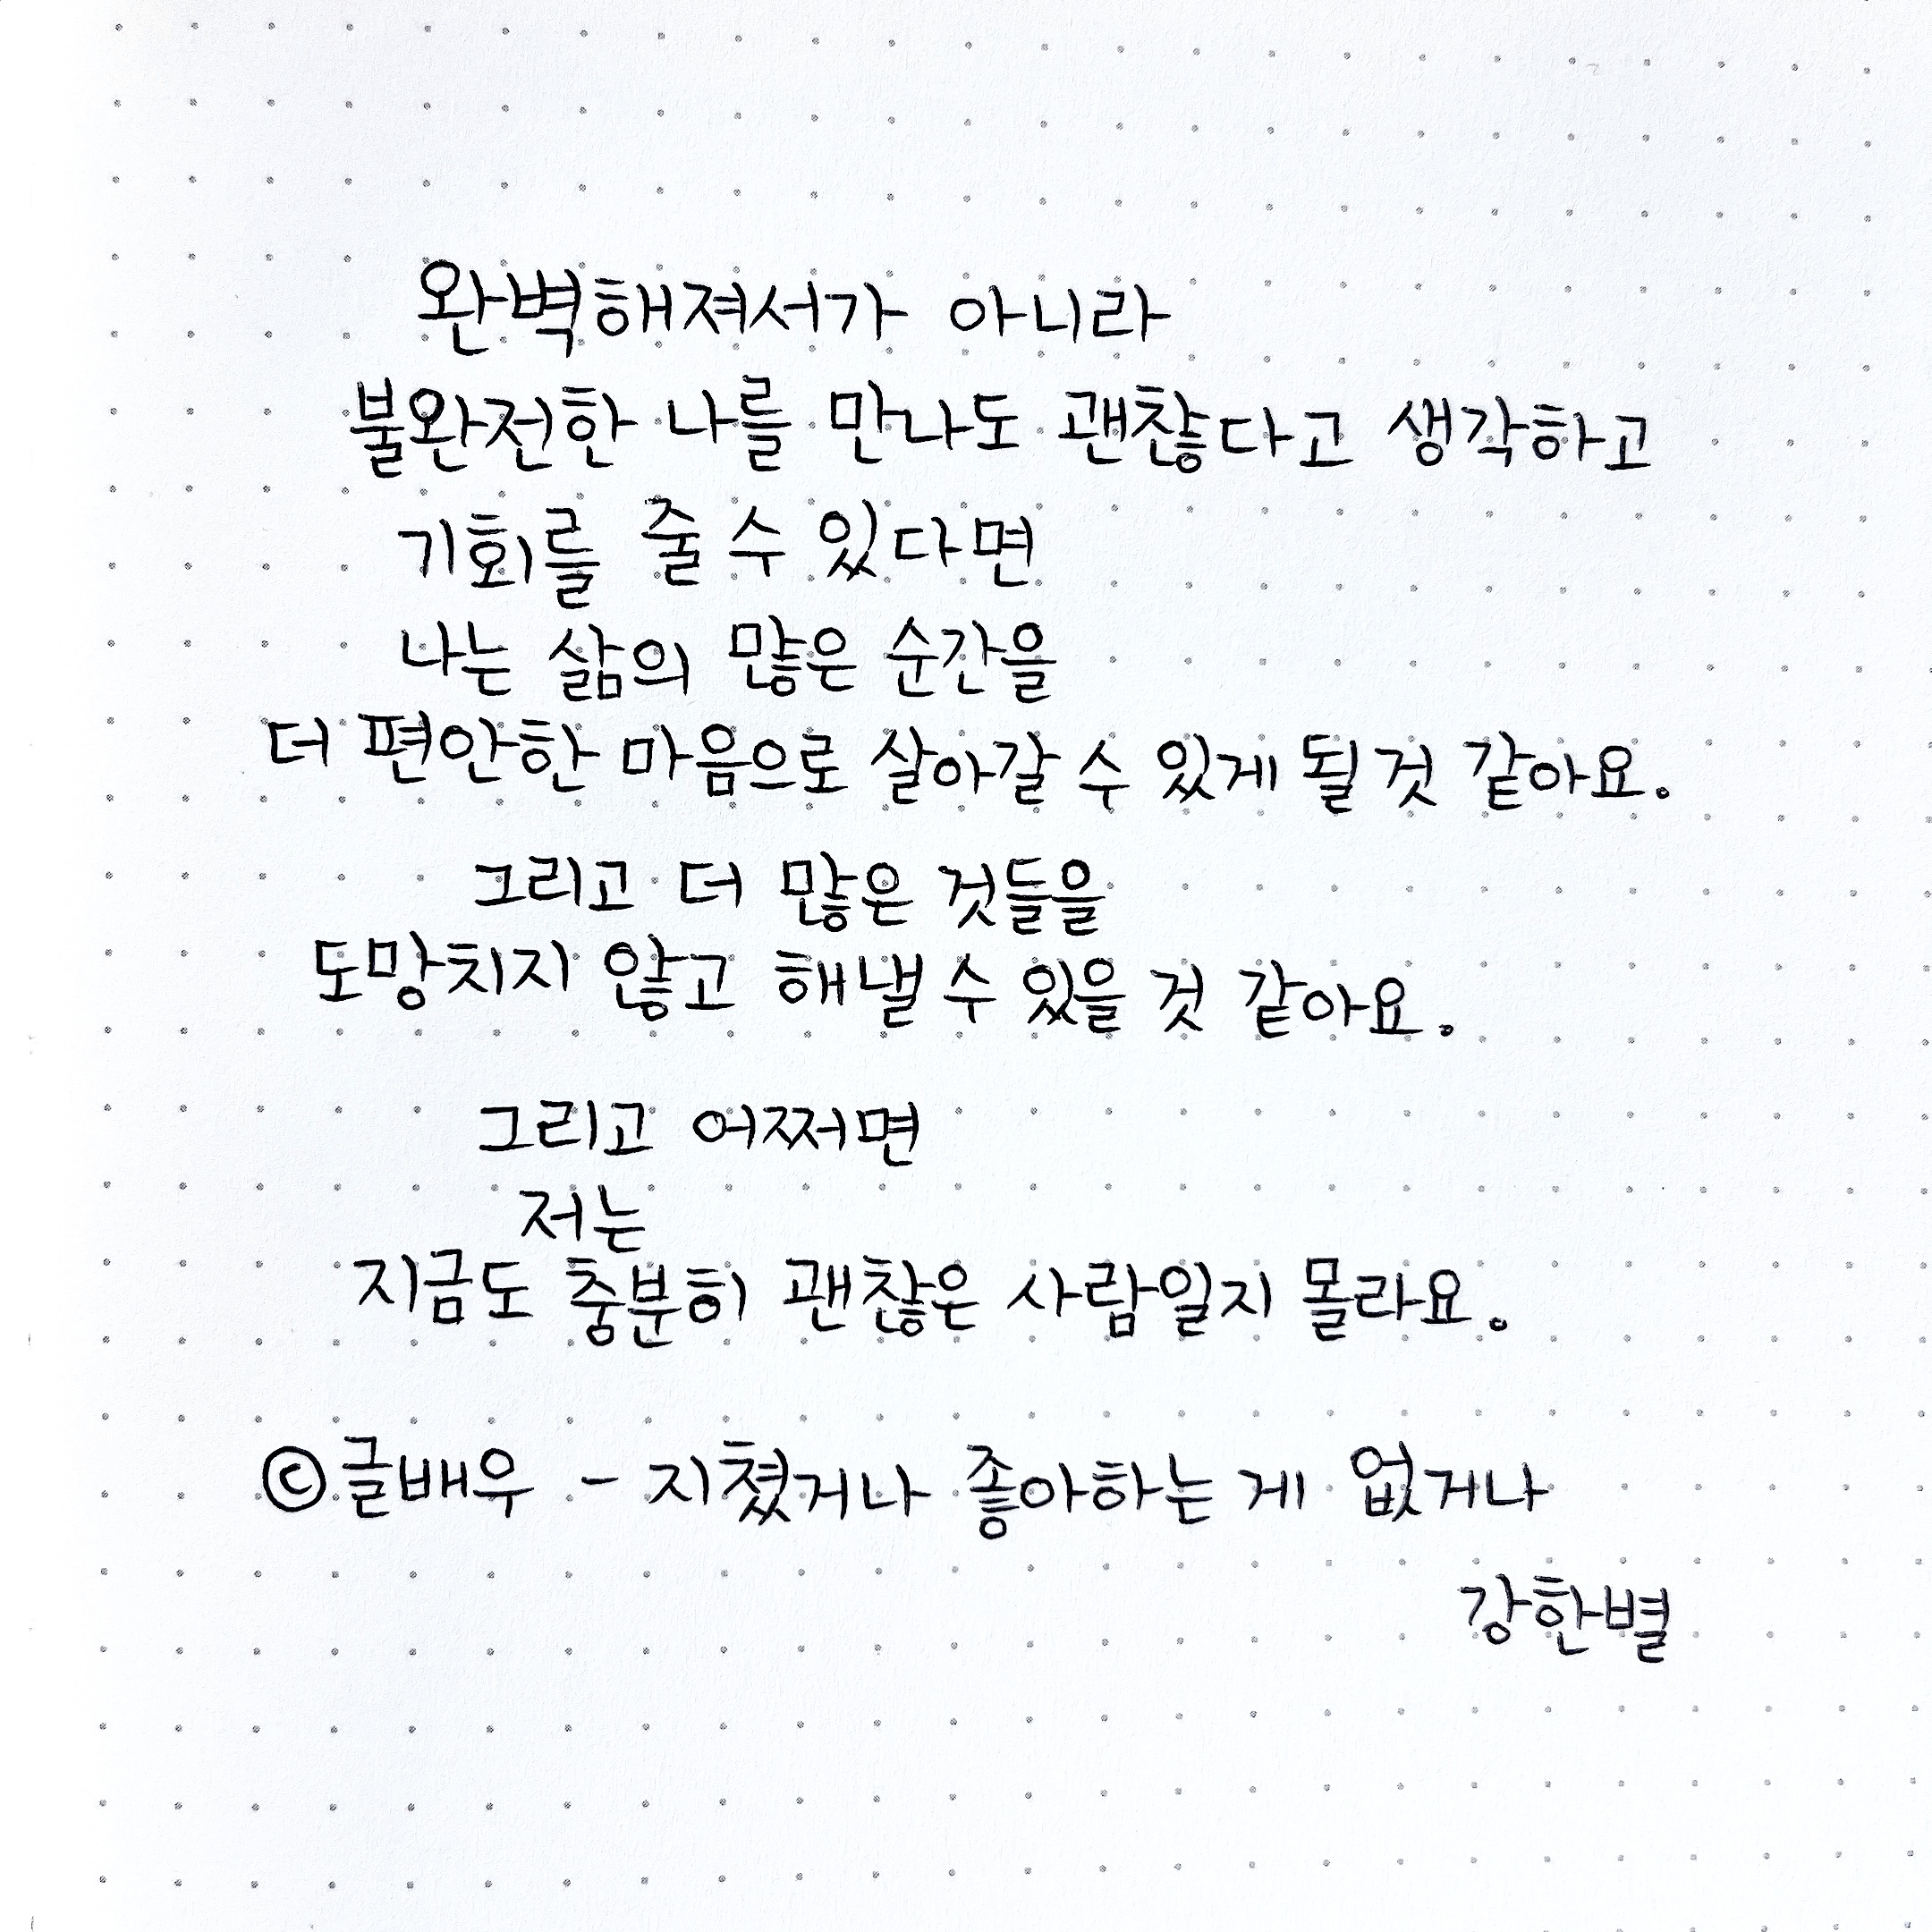 완벽해져서가 아니라
불완전한 나를 만나도 괜찮다고 생각하고
기회를 줄 수 있다면
나는 삶의 많은 순간을
더 편안한 마음으로 살아갈 수 있게 될 것 같아요.
그리고 더 많은 것들을
도망치지 않고 해낼 수 있을 것 같아요.
그리고 어쩌면
저는
지금도 충분히 괜찮은 사람일지 몰라요.
©글배우 - 지쳤거나 좋아하는 게 없거나
강한별